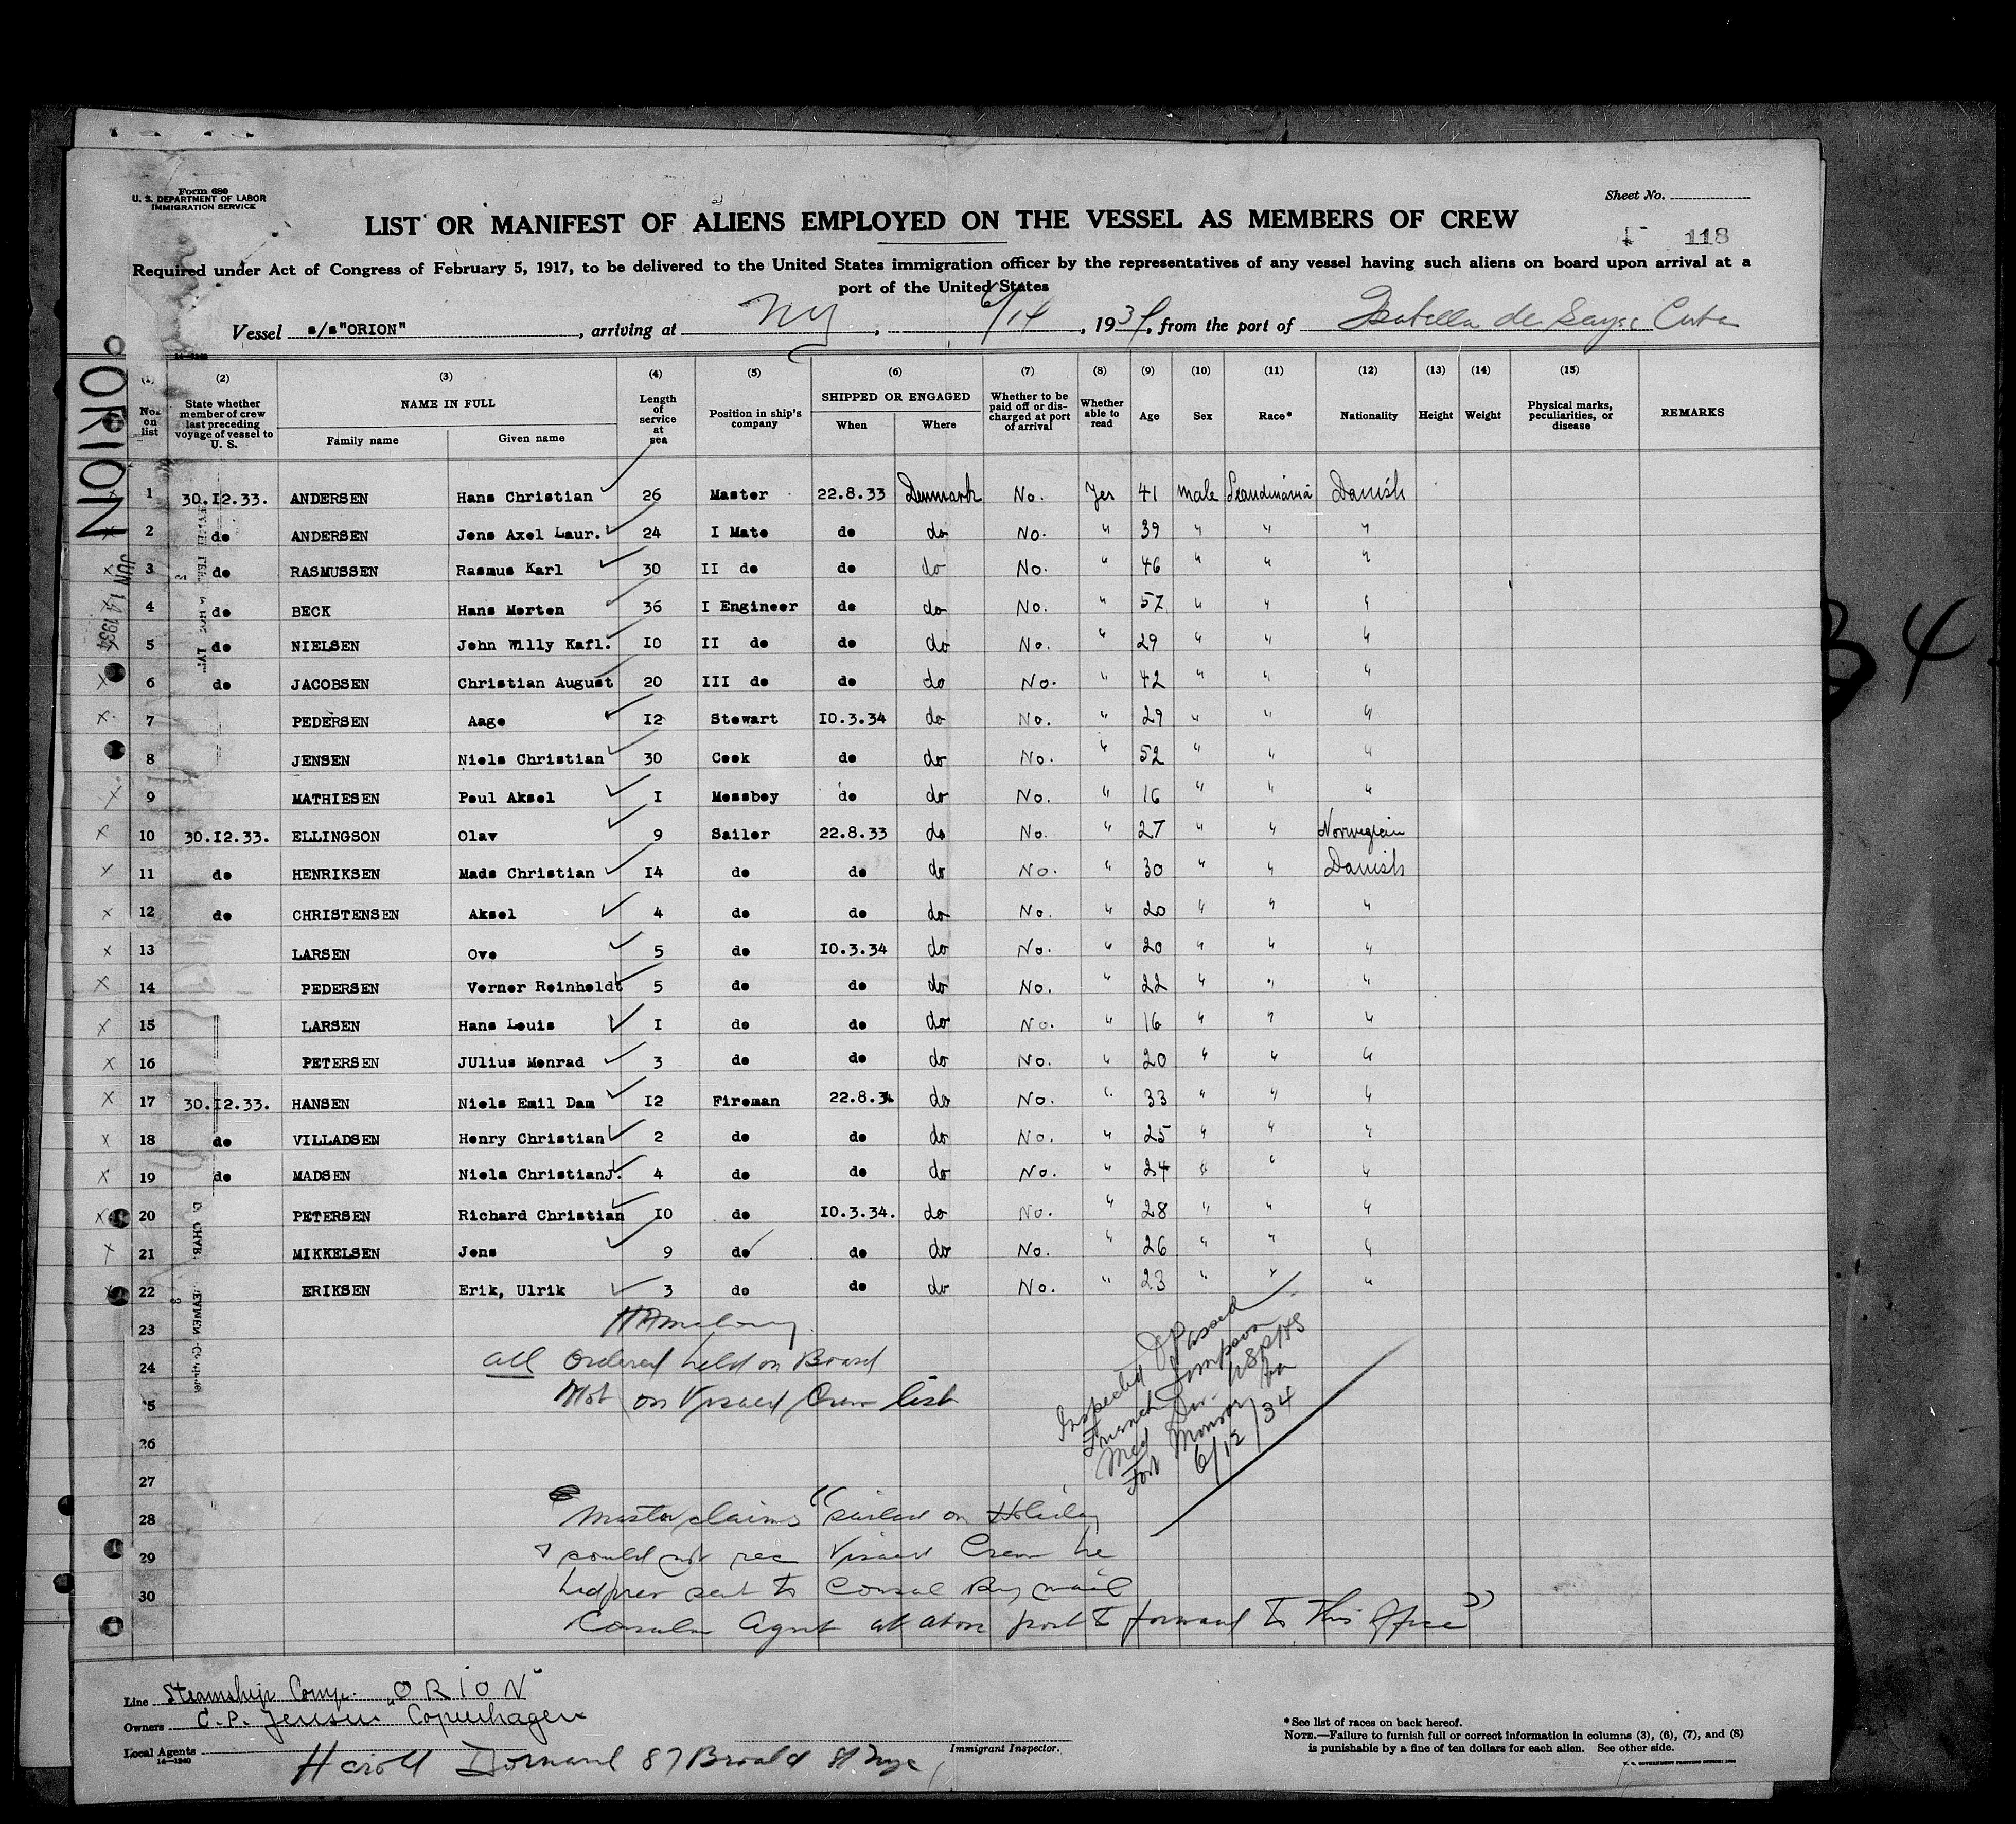 Form 680
U. S. DEPARTMENT OF LABOR
IMMIGRATION SERVICE
Sheet No.
LIST OR MANIFEST OF ALIENS EMPLOYED ON THE VESSEL AS MEMBERS OF CREW
118
Required under Act of Congress of February 5, 1917, to be delivered to the United States immigration officer by the representatives of any vessel having such aliens on board upon arrival at a
port of the United States
Vessel s/s "ORION", arriving at NY, 6/14, 1934, from the port of Isabella de Cuba
ORION
JUN 14 1934
34
(1) (2) (3) (4) (5) (6) (7) (8) (9) (10) (11) (12) (13) (14) (15)
No. on list State whether member of crew last preceding voyage of vessel to U. S. NAME IN FULL Length of service at sea Position in ship's company SHIPPED OR ENGAGED Whether to be paid off or discharged at port of arrival Whether able to read Age Sex Race* Nationality Height Weight Physical marks, peculiarities, or disease REMARKS
Family name Given name When Where
1 30.I2.33. ANDERSEN Hans Christian 26 Master 22.8.33 Denmark No. Yes 41 Male Scandinavia Danish
2 do ANDERSEN Jens Axel Laur. 24 I Mate do do No. " 39 " " "
3 do RASMUSSEN Rasmus Karl 30 II do do do No. " 46 " " "
4 do BECK Hans Morten 36 I Engineer do do No. " 57 " " "
5 do NIELSEN John Willy Kafl. I0 II do do do No. " 29 " " "
6 do JACOBSEN Christian August 20 III do do do No. " 42 " " "
7 PEDERSEN Aage I2 Stewart I0.3.34 do No. " 29 " " "
8 JENSEN Niels Christian 30 Cook do do No. " 52 " " "
9 MATHIESEN Poul Aksel I Messboy do do No. " 16 " " "
10 30.I2.33. ELLINGSON Olav 9 Sailor 22.8.33 do No. " 27 " " Norwegian
11 do HENRIKSEN Mads Christian I4 do do do No. " 30 " " Danish
12 do CHRISTENSEN Aksel 4 do do do No. " 20 " " "
13 LARSEN Ove 5 do I0.3.34 do No. " 20 " " "
14 PEDERSEN Verner Reinholdt 5 do do do No. " 22 " " "
15 LARSEN Hans Louis I do do do No. " 16 " " "
16 PETERSEN JUlius Monrad 3 do do do No. " 20 " " "
17 30.I2.33. HANSEN Niels Emil Dam I2 Fireman 22.8.34 do No. " 33 " " "
18 do VILLADSEN Henry Christian 2 do do do No. " 25 " " "
19 do MADSEN Niels ChristianJ. 4 do do do No. " 24 " " "
20 PETERSEN Richard Christian I0 do I0.3.34. do No. " 28 " " "
21 MIKKELSEN Jens 9 do do do No. " 26 " " "
22 ERIKSEN Erik, Ulrik 3 do do do No. " 23 " " "
23
24 all Ordered held on Board
25 Not on Visaed Crew list
Inspected & Passed
Med Div. USPHS
Fort Monroe Va
6/12/34
26
27
28 Master claims "sailed on Holiday
29 & could not rec Visaed Crew he
30 sent to Consul By mail
Consular Agent at above port to forward to this Office"
Line Steamship Comp. "ORION"
Owners C. P. Jensen Copenhagen
Local Agents
14—1240
Harold 87 Broad St NYC
Immigrant Inspector.
*See list of races on back hereof.
NOTE.—Failure to furnish full or correct information in columns (3), (6), (7), and (8)
is punishable by a fine of ten dollars for each alien. See other side.